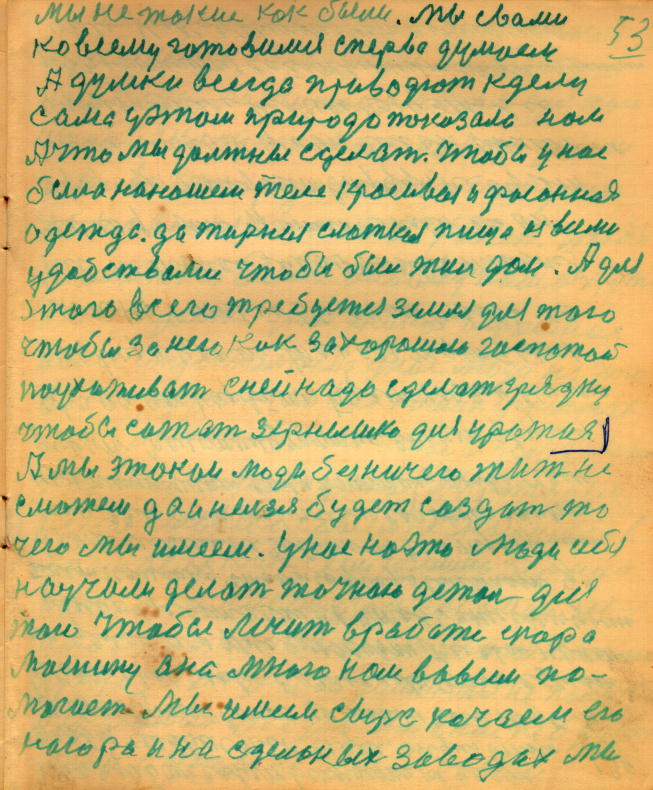 53
мы не такие как были. Мы с вами
ко всему готовимся сперва думаем
А думки всегда приводют к делу
сама у этом природа показала нам
А что мы должны сделат. Чтобы у нас
была на нашем теле красивая и фасонная
одежда. да жирная слаткая пища из всеми
удобствами чтобы был жил дом. А для
этого всего требуется земля для того
чтобы за него как за хорошею
поухаживат с ней надо сделат грядку
чтобы сажат зернышко для урожая
А мы этакои люди без ничего жит не
сможем да и нелзя будет создат то
чего мы имеем. У нас на это люди себя
научили делат точною детал для
того чтобы лечит в работе
машину она много нам вовсем по-
могает Мы имеем сырё качаем его
нагора и на сдельных заводах мы